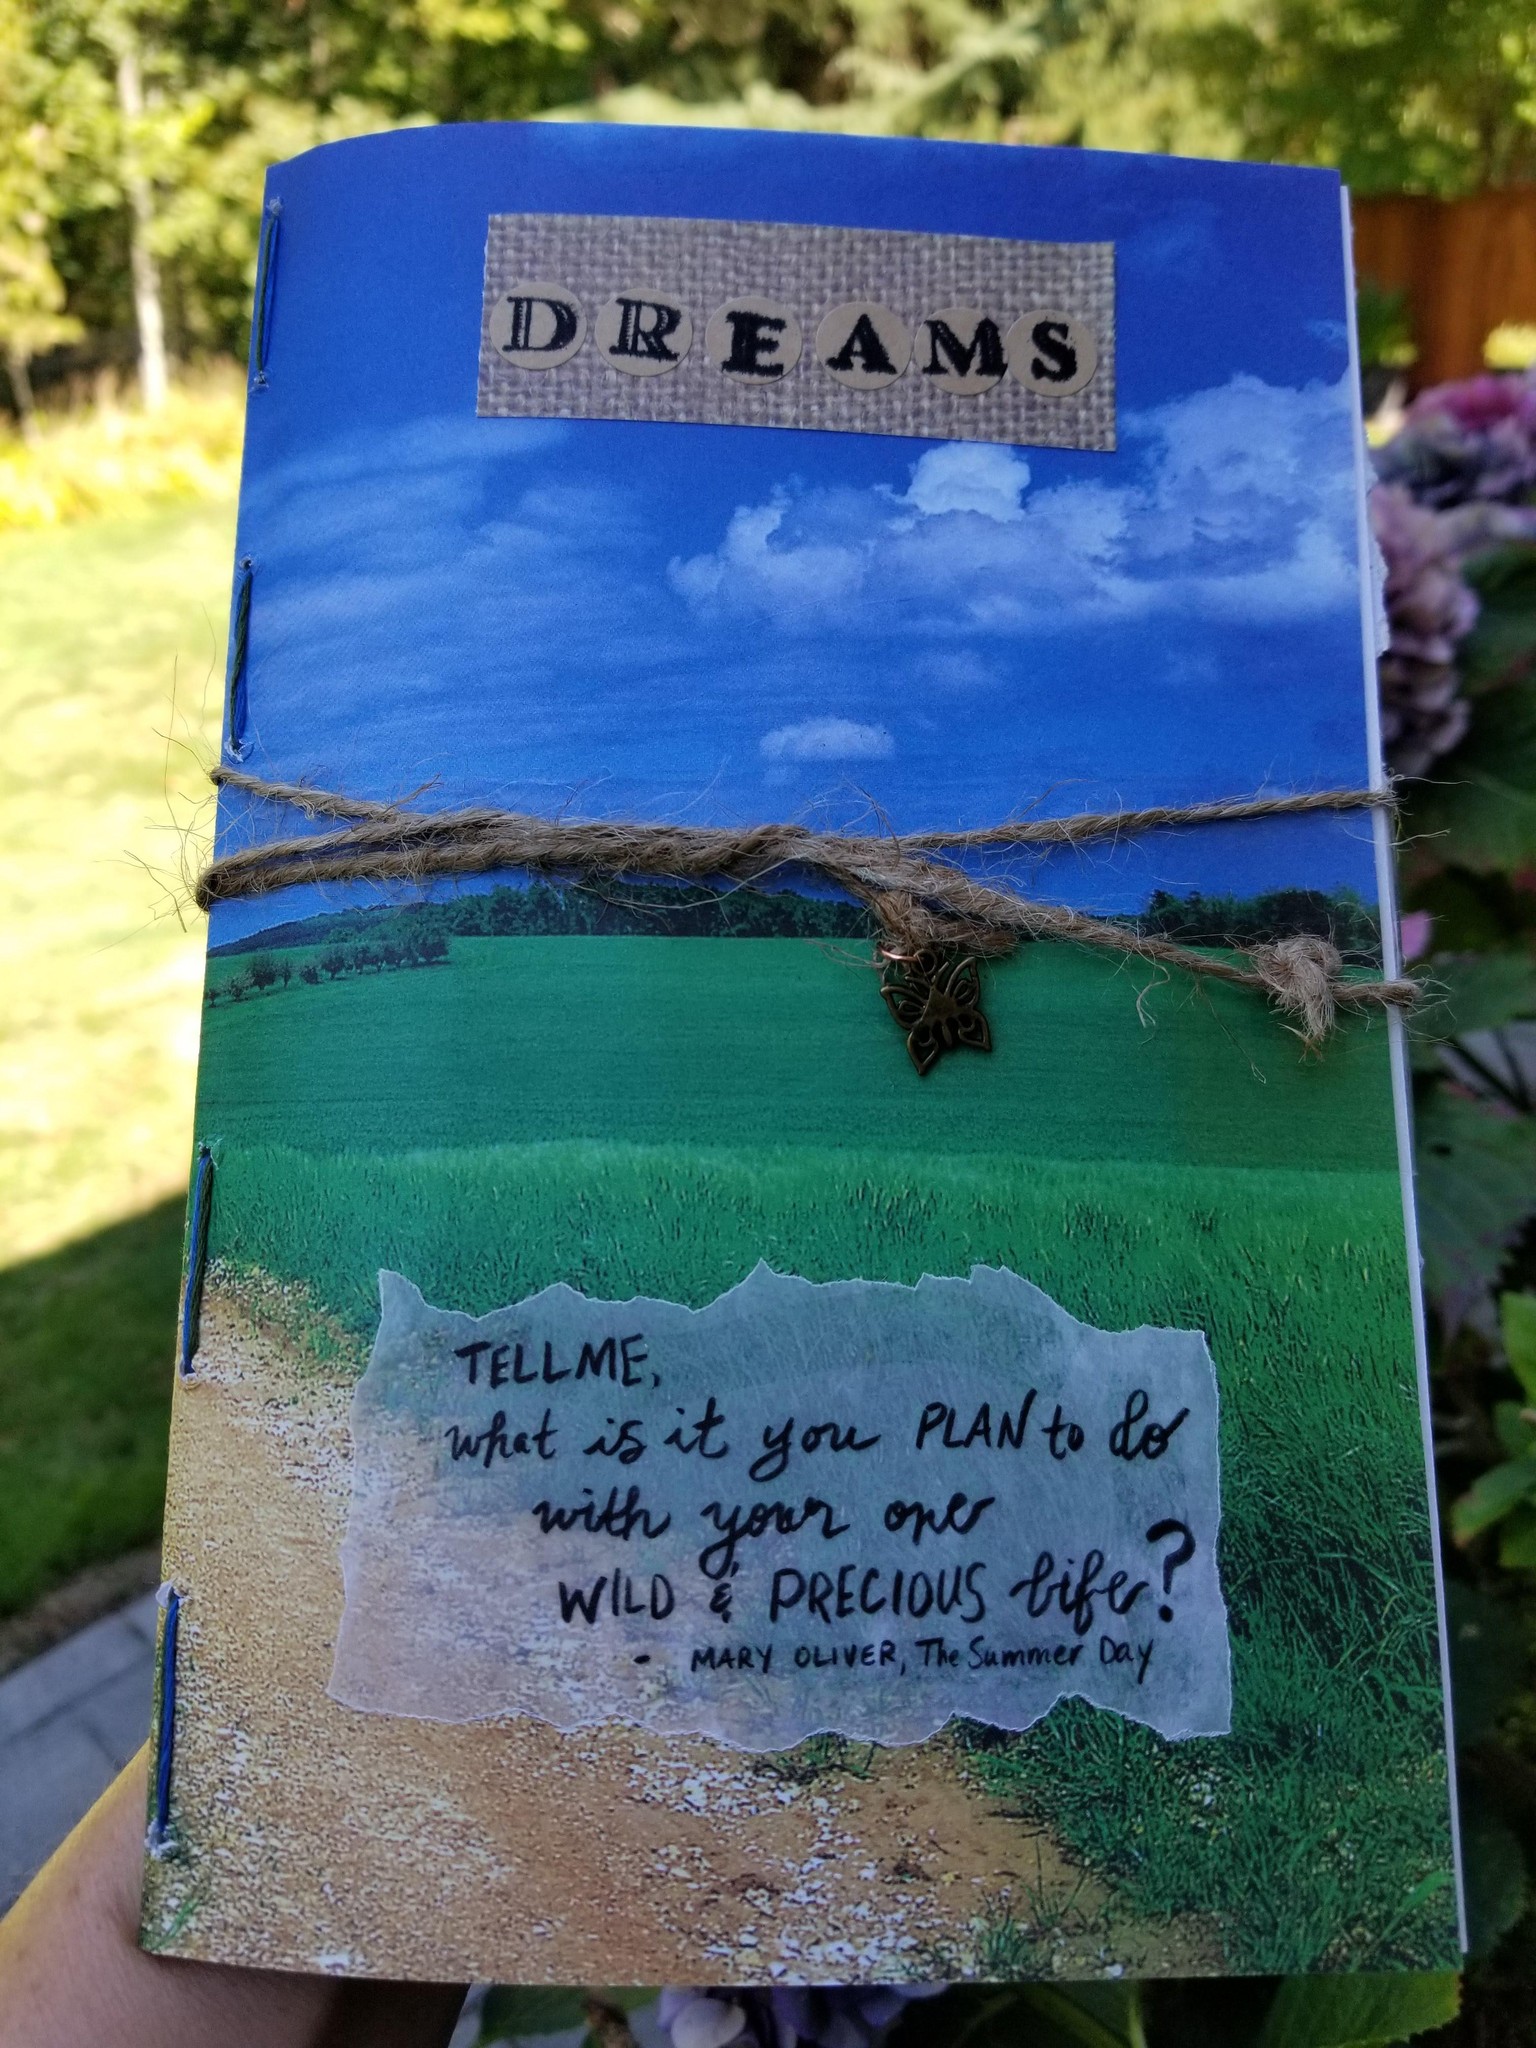 DREAMS
TELL ME,
what is it you PLAN to do
with your one
WILD & PRECIOUS life?
- MARY OLIVER, The Summer Day